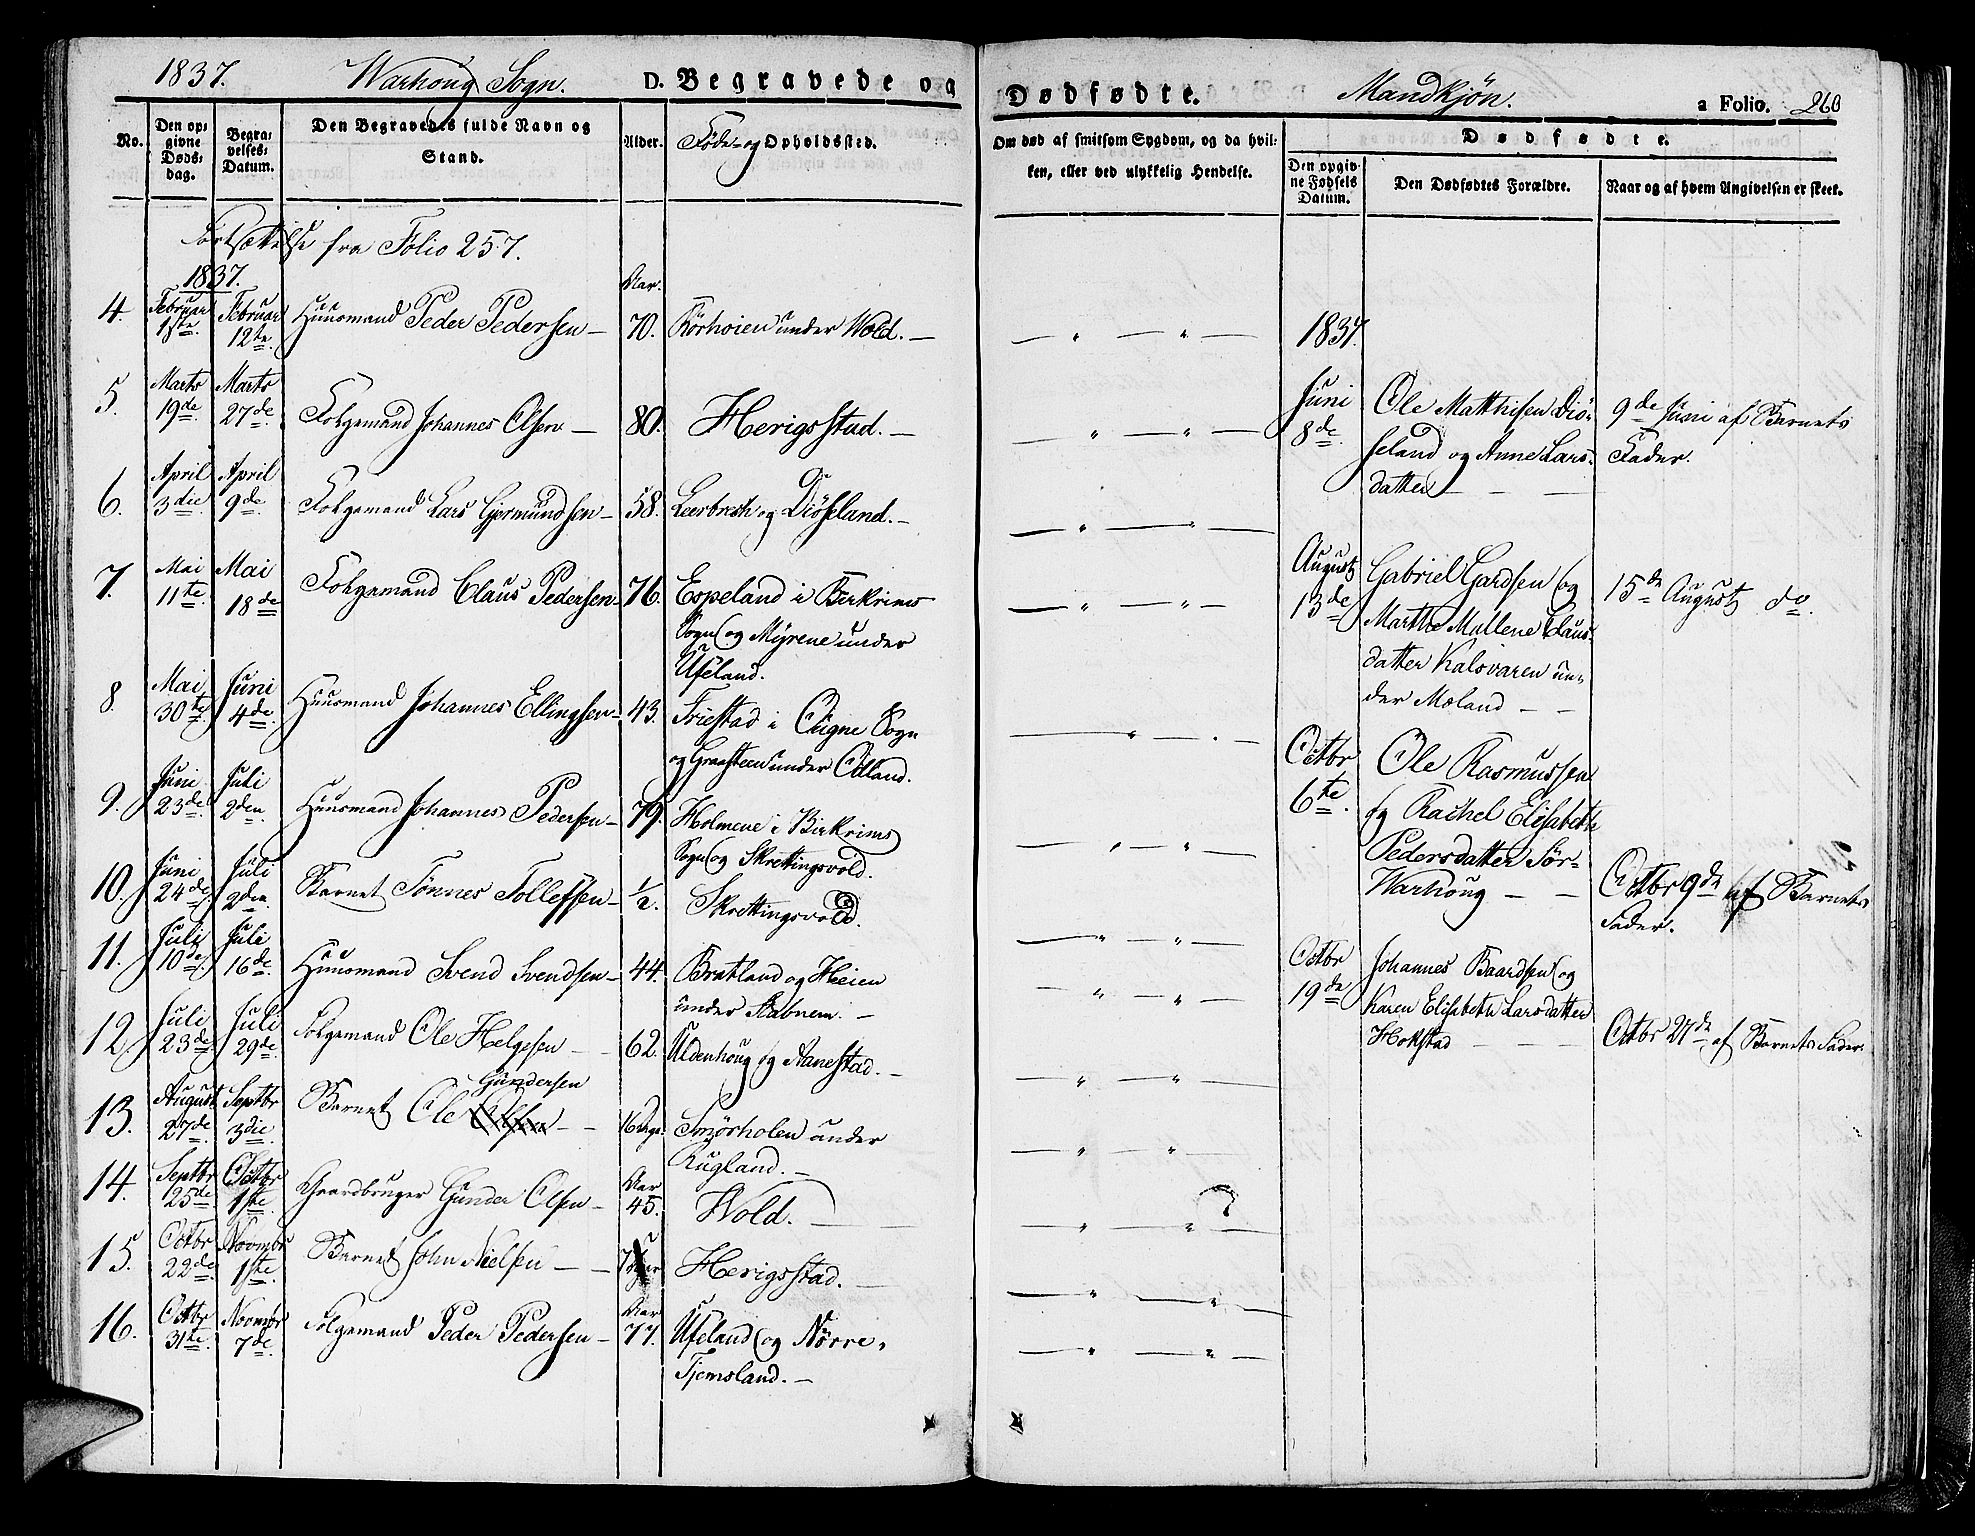 1837. Warhoug Sogn. D. Begravede og
No. Den opgivne Dødsdag. Begravelses Datum. Den Begravedes fulde Navn og Stand. Alder. Føde- og Opholdssted.
Fortsættelse fra Folio 257.
1837. Aar.
4. Februar 1ste. Februar 12te. Huusmand Peder Pedersen — 70. Rörhoien under Wold. —
5. Marts 19de. Marts 27de. Folgemand Johannes Olsen — 80. Herigsstad. —
6. April 3die. April 9de. Folgemand Lars Gjermundsen — 58. Leerbrek og Diöseland. —
7. Mai 11te. Mai 18de Folgemand Claus Pedersen — 76. Espeland i Birkrims
Sogn og Myrene under
Ufeland.
8. Mai 30te. Juni 4de. Huusmand Johannes Ellingsen — 43. Friestad i Ougne Sogn
og Graasteen under Odland.
9. Juni 23de. Juli 2den. Huusmand Johannes Pedersen — 79. Holmene i Birkrims
Sogn og Skrettingsvold.
10. Juni 24de. Juli 2den. Barnet Tönnes Tollefsen — 1/2. Skrettingsvold.
11. Juli 10de. Juli 16de. Huusmand Svend Svendsen — 44. Bratland og Heien
under Stabnem. —
12. Juli 23de. Juli 29de. Folgemand Ole Helgesen — 62. Uldenhoug og Aanestad. —
Gundersen
13. August 27de. Septbr 3die. Barnet Ole Olsen — 16 Dage. Smörholen under
Rugland. —
14. Septbr 25de. Octbr 1ste. Gaardbruger Gunder Olsen — Aar 45. Wold. —
15. Octbr 22de. Novmbr 1ste. Barnet John Nielsen — 7 Herigsstad. —
16. Octbr 31te. Novmbr 7de. Folgemand Peder Pedersen — Aar 77. Ufeland og Nörre-
Tjemsland. —
Dødfødte. Mandkjøn. a Folio. 260
Om død af smitsom Sygdom, og da hvilken, eller ved ulykkelig Hendelse.
Dødfødte.
Den opgivne Fødsels Datum. Den Dødfødtes Forældre. Naar og af hvem Angivelsen er skeet.
1837.
Juni 8de. Ole Matthisen Diö- 9de Juni af Barnets
seland og Anne Lars- Fader.
datter — —
August 13de Gabriel Gardsen og 15de August do.
Marthe Mallene Claus-
datter Kalsvaren un-
der Moland — —
Octbr 6te. Ole Rasmussen
og Rachel Elisabeth
Pedersdatter Sör-
Warhoug — — Octbr 9de af Barnets
Fader.
Octbr 19de Johannes Baardsen og
Karen Elisabeth Larsdatter
Hokstad — — Octbr 27de af Barnets Fader.